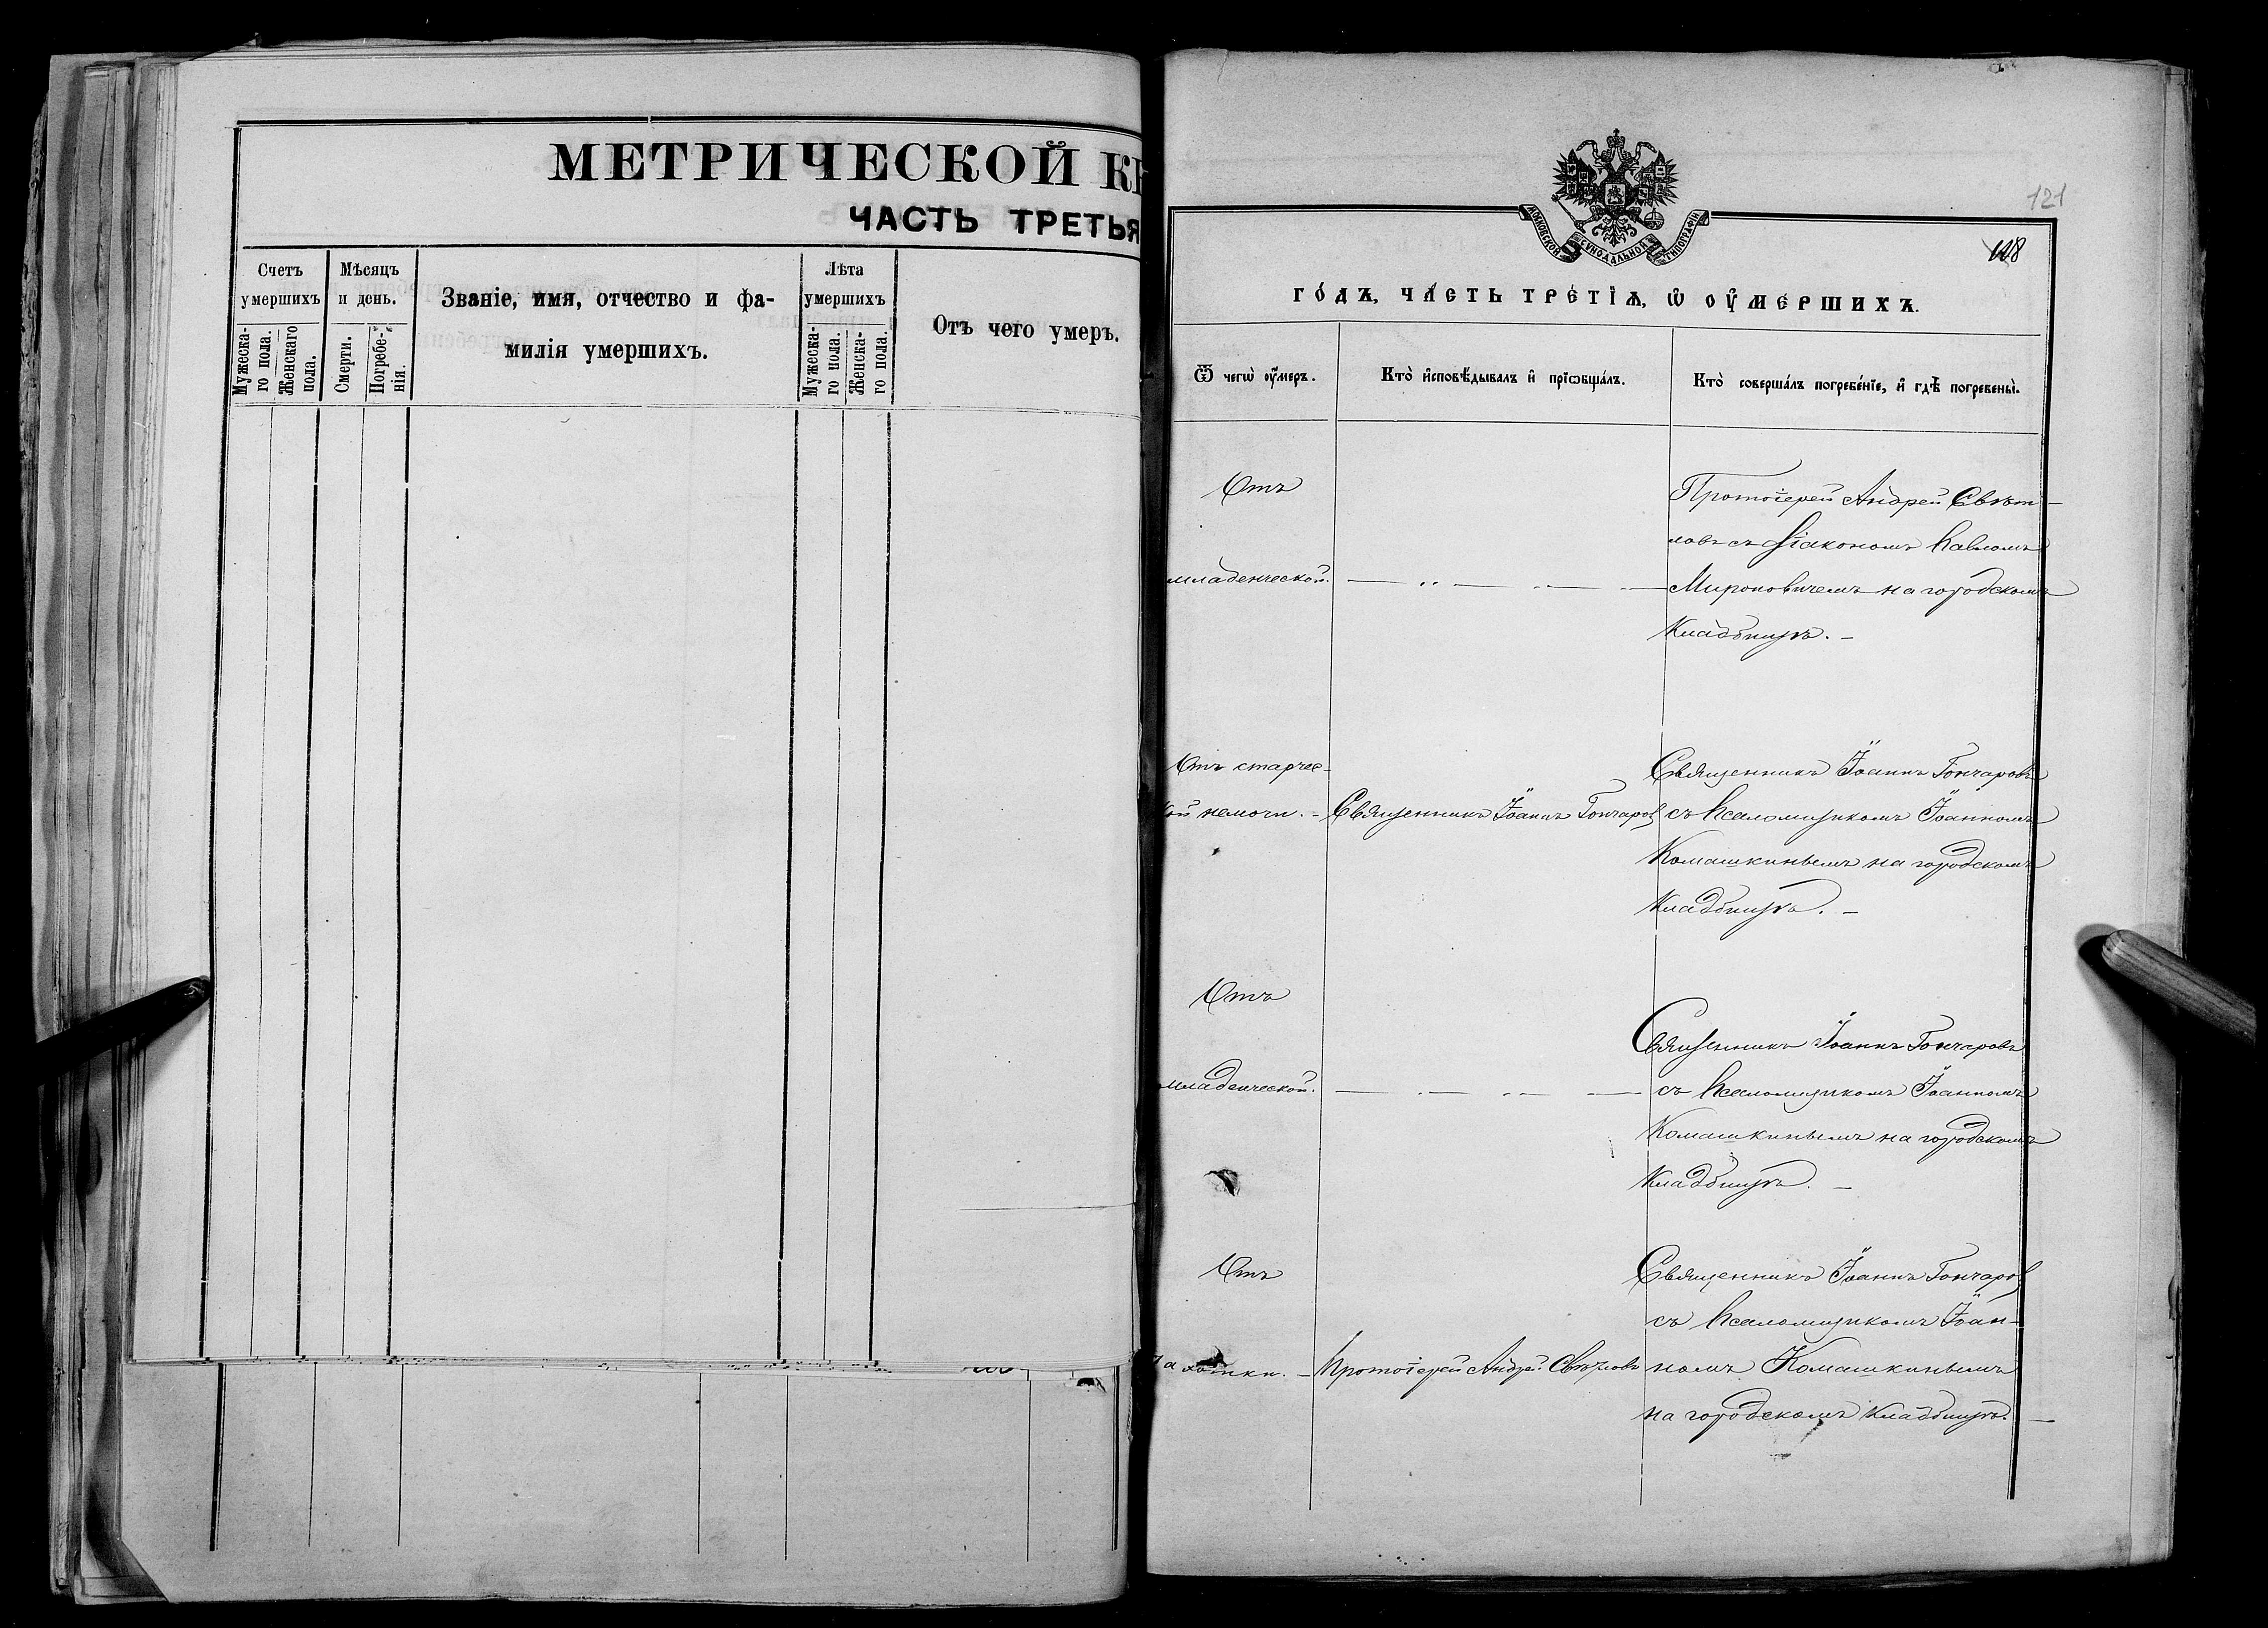 МЕТРИЧЕСКОЙ КН
ЧАСТЬ ТРЕТЬЯ
Счетъ умершихъ
Мужеска-го пола.
Женскаго пола.
Мѣсяцъ и день.
Смерти.
Погребе-нія.
Званіе, имя, отчество и фа-
милія умершихъ.
Лѣта умершихъ
Мужеска-го пола.
Женска-го пола.
Отъ чего умеръ.
МОСКОВСКОЙ СѴНОДАЛЬНОЙ ТИПОГРАФІИ
121
118
го́дъ, ча́сть тре́тїѧ, ѡ҆ ᲂу҆ме́ршихъ.
Ѿ чегѡ̀ ᲂу҆́меръ.
Кто̀ и҆сповѣ́дывалъ и҆ прїѡбща́лъ.
Кто̀ соверша́лъ погребе́нїе, и҆ гдѣ̀ погребены̀.
Отъ
младенческой.
Протоіерей Андрей Свѣт-
ловъ съ Діакономъ Павломъ
Мироновичемъ на городскомъ
Кладбищѣ. —
Отъ старчес-
кой немочи. —
Священникъ Іоаннъ Гончаров
Священникъ Іоаннъ Гончаровъ
съ Псаломщикомъ Іоанномъ
Комашкинымъ на городскомъ
Кладбищѣ. —
Отъ
младенческой.
Священникъ Іоаннъ Гончаровъ
съ Псаломщикомъ Іоанномъ
Комашкинымъ на городскомъ
Кладбищѣ. —
Отъ
чахотки. —
Протоіерей Андрей Свѣтловъ
Священникъ Іоаннъ Гончаров
съ Псаломщикомъ Іоан-
номъ Комашкинымъ
на городскомъ Кладбищѣ. —